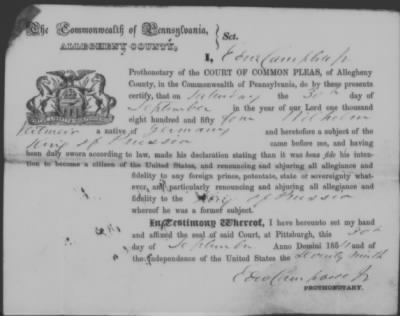 The Commonwealth of Pennsylvania,
ALLEGHENY COUNTY,
Sct.
I, Edw Campbell Jr
Prothonotary of the COURT OF COMMON PLEAS, of Allegheny
County, in the Commonwealth of Pennsylvania, do by these presents
certify, that on Saturday the 30th day of
September in the year of our Lord one thousand
eight hundred and fifty four Wilhelm
a native of Germany and heretofore a subject of the
King of Prussia came before me, and having
been duly sworn according to law, made his declaration stating that it was bona fide his inten-
tion to become a citizen of the United States, and renouncing and abjuring all allegiance and
fidelity to any foreign prince, potentate, state or sovereignty what-
ever, and particularly renouncing and abjuring all allegiance and
fidelity to the King of Prussia
whereof he was a former subject.
In Testimony Whereof, I have hereunto set my hand
and affixed the seal of said Court, at Pittsburgh, this 30th
day of September Anno Domini 1854 and of
the Independence of the United States the Seventy Ninth
Edw Campbell Jr
PROTHONOTARY.